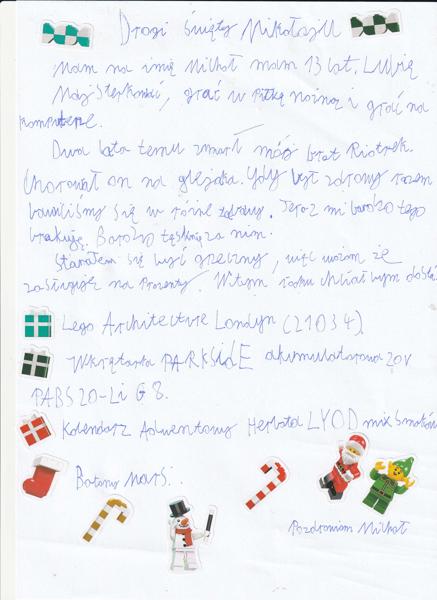 Drogi święty Mikołaju
Mam na imię Michał mam 13 lat. Lubię
Majsterkować, grać w piłkę nożną i grać na
komputerze.
Dwa lata temu zmarł mój brat Piotrek.
Chorował on na glejaka. Gdy był zdrowy razem
bawiliśmy się w różne zabawy. Teraz mi bardzo tego
brakuję. Bardzo tęsknię za nim.
Starałem się być grzeczny, więc uważam że
zasługuję na prezenty. W tym roku chciałbym dostać
Lego Architecture Londyn (21034).
Wkrętarka PARKSIDE akumulatorowa 20V
PABS 20-Li G8.
Kalendarz Adwentowy Herbata LYOD mix smaków
Batony Mars.
Pozdrawiam Michał